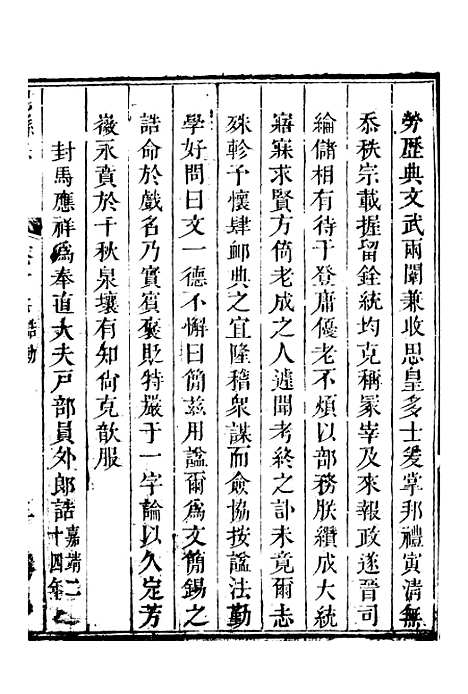 勞歷典文武兩闈兼收思皇多士爰掌邦禮寅清無
忝秩宗載握留銓統均克稱冢宰及來報政遂晉司
綸儲相有待于登庸優老不煩以部務朕纘成大統
寤寐求賢方倚老成之人遽聞考終之訃未竟爾志
殊軫予懷肆䘏典之宜隆稽衆謀而僉協按諡法勤
學好問曰文一德不懈曰簡茲用諡爾爲文簡錫之
誥命於戲名乃實賓褒貶特嚴于一字論以久定芳
徽永賁於千秋泉壤有知尙克歆服
封馬應祥爲奉直大夫戸部員外郎誥嘉靖二十四年
誥勅